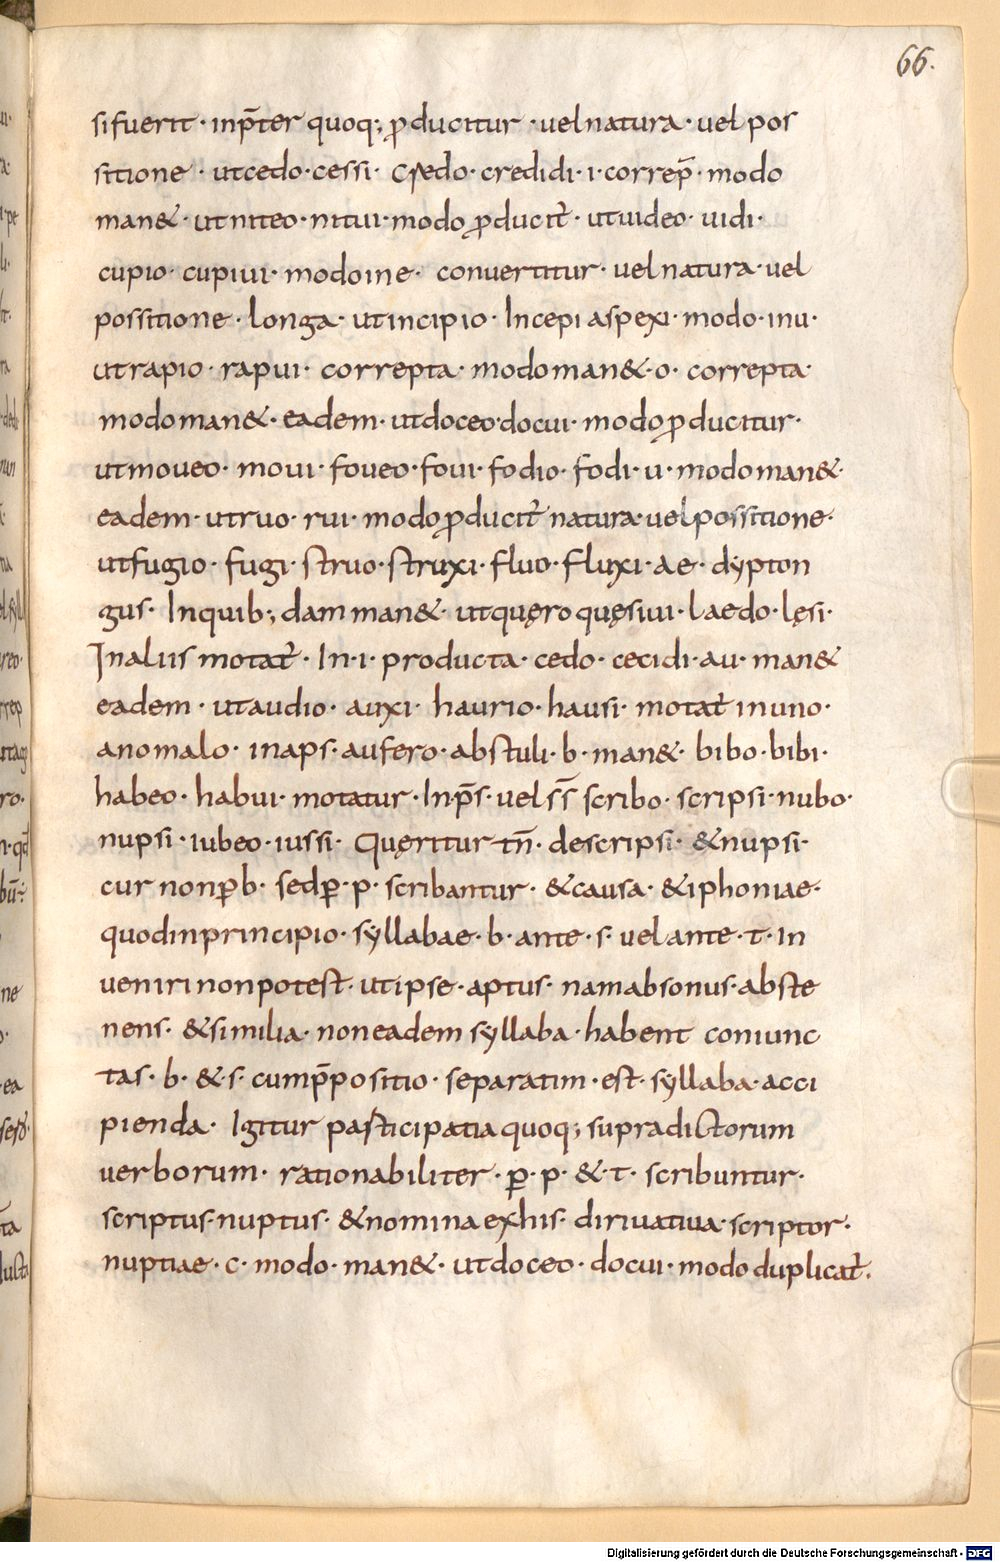 66.
sifuerit · inp̄ter quoq; ꝓducitur · uelnatura · uel pos
sitione · utcedo · cessi · Credo · credidi · i · correp̄ · modo
man& · ut niteo · nitui · modo ꝓducit᷑ · utuideo · uidi ·
cupio · cupiui · modoine · conuertitur · uelnatura · uel
possitione · longa · utincipio · Incepi aspexi · modo · inu ·
utrapio · rapui · correpta · modoman& · o · correpta ·
modoman& · eadem · utdoceo · docui · modo ꝓducitur ·
utmoueo · moui · foueo · foui · fodio · fodi · u · modoman& ·
eadem · utruo · rui · modo ꝓducit᷑ natura · uel possitione ·
utfugio · fugi · struo · struxi · fluo · fluxi · ae · dypton
gus · Inquib; dam man& · utquęro quęsiui · laedo · lęsi ·
Inaliis motat᷑ · In · i · producta · cedo · cecidi · au · man&
eadem · utaudio · auxi · haurio · hausi · motat᷑ inuno ·
anomalo · inaps · aufero · abstuli · b · man& · bibo · bibi ·
habeo · habui · motatur · In · p̄s · uel s̄s̄ scribo · scripsi · nubo ·
nupsi · iubeo · iussi · Quęritur tn̄ · descripsi · &nupsi ·
cur nonꝑ b · sedꝑ · p · scribantur · &causa · &iphoniae ·
quodinprincipio · syllabae · b · ante · s · uel ante · t · in
ueniri nonpotest · utipse · aptus · namabsonus · abste
nens · &similia · noneadem syllaba · habent coniunc
tas · b · & · s · cump̄positio · separatim · est · syllaba · acci
pienda · Igitur participatia quoq; supradictorum
uerborum · rationabiliter · ꝑ · p · & · t · scribuntur ·
scriptus · nuptus · &nomina exhis · diriuatiua · scriptor ·
nuptiae · c · modo · man& · utdoceo · docui · modo duplicat᷑ .
Digitalisierung gefördert durch die Deutsche Forschungsgemeinschaft - DFG